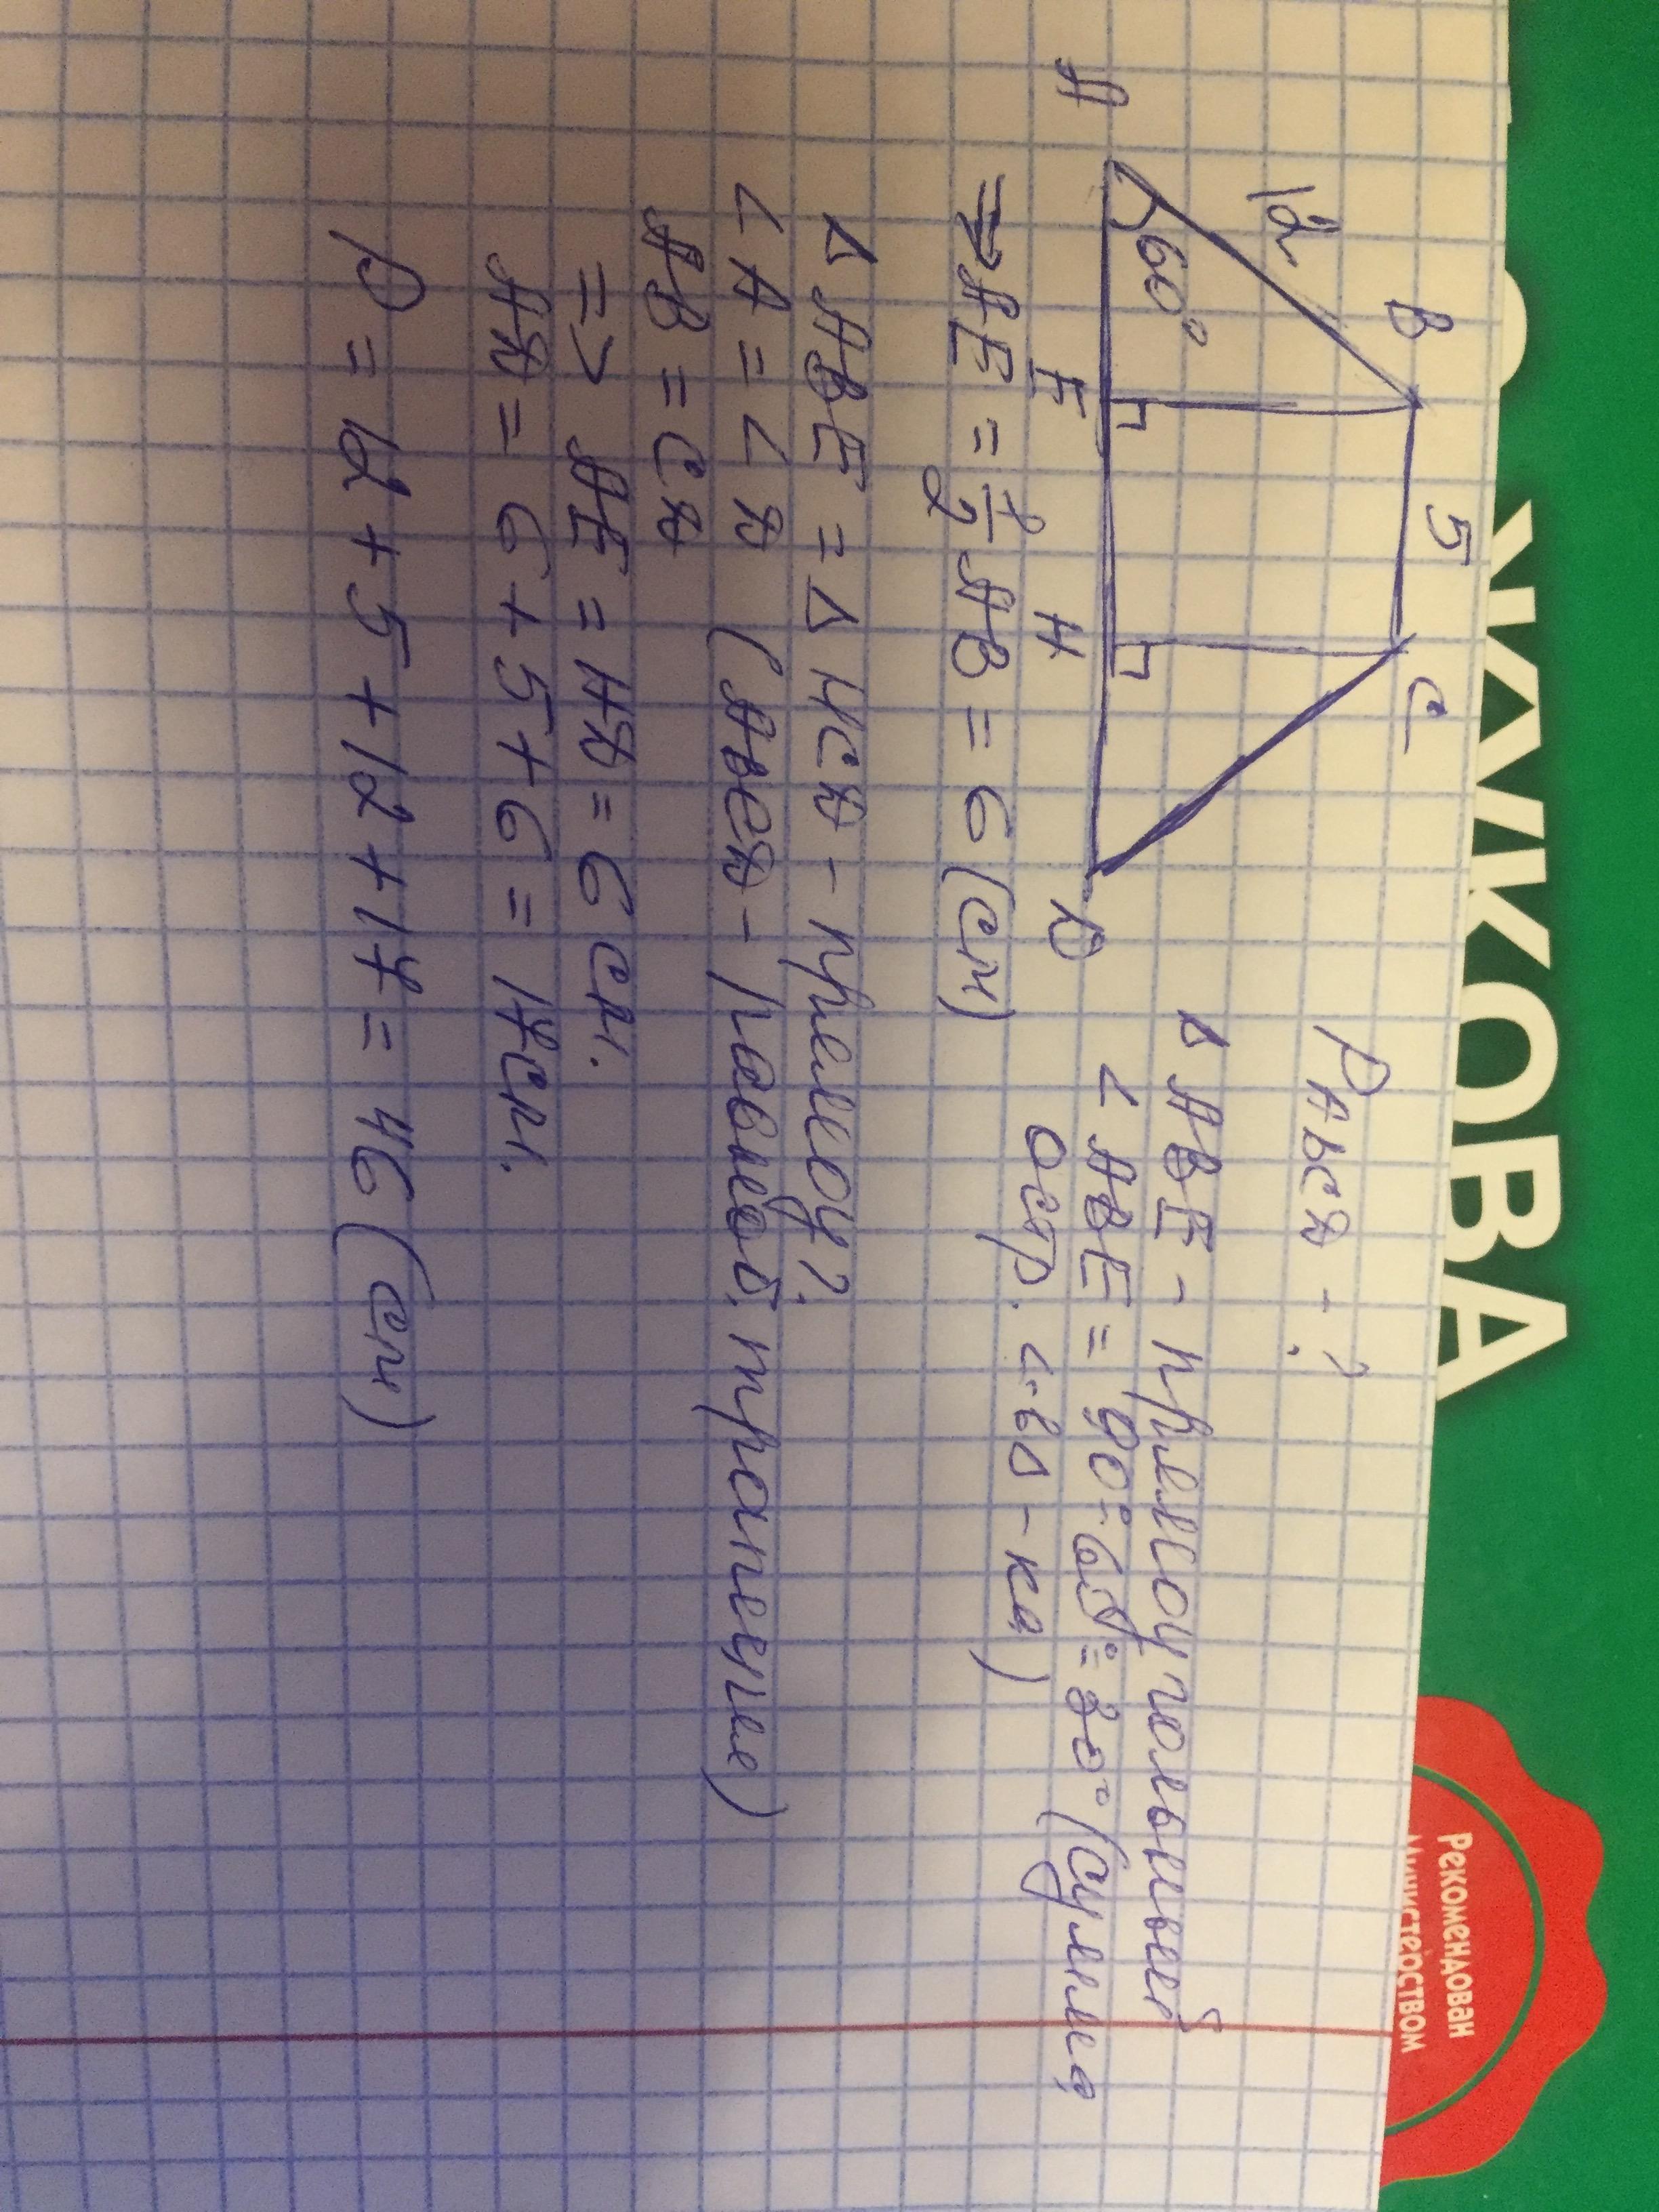 ЖУКОВА
Рекомендован
Министерством
B 5 C
12
60°
A E H D
P ABCD - ?
Δ ABE - прямоугольный
∠ ABE = 90° - 60° = 30° (сумма
остр. ∠ в Δ-ка)
=> AE = 1/2 AB = 6 (см)
Δ ABE = Δ HCD - прямоуг.
∠A = ∠D (ABCD - равноб. трапеция)
AB = CD
=> AE = HD = 6 см.
AD = 6 + 5 + 6 = 17 см.
P = 12 + 5 + 12 + 17 = 46 (см)